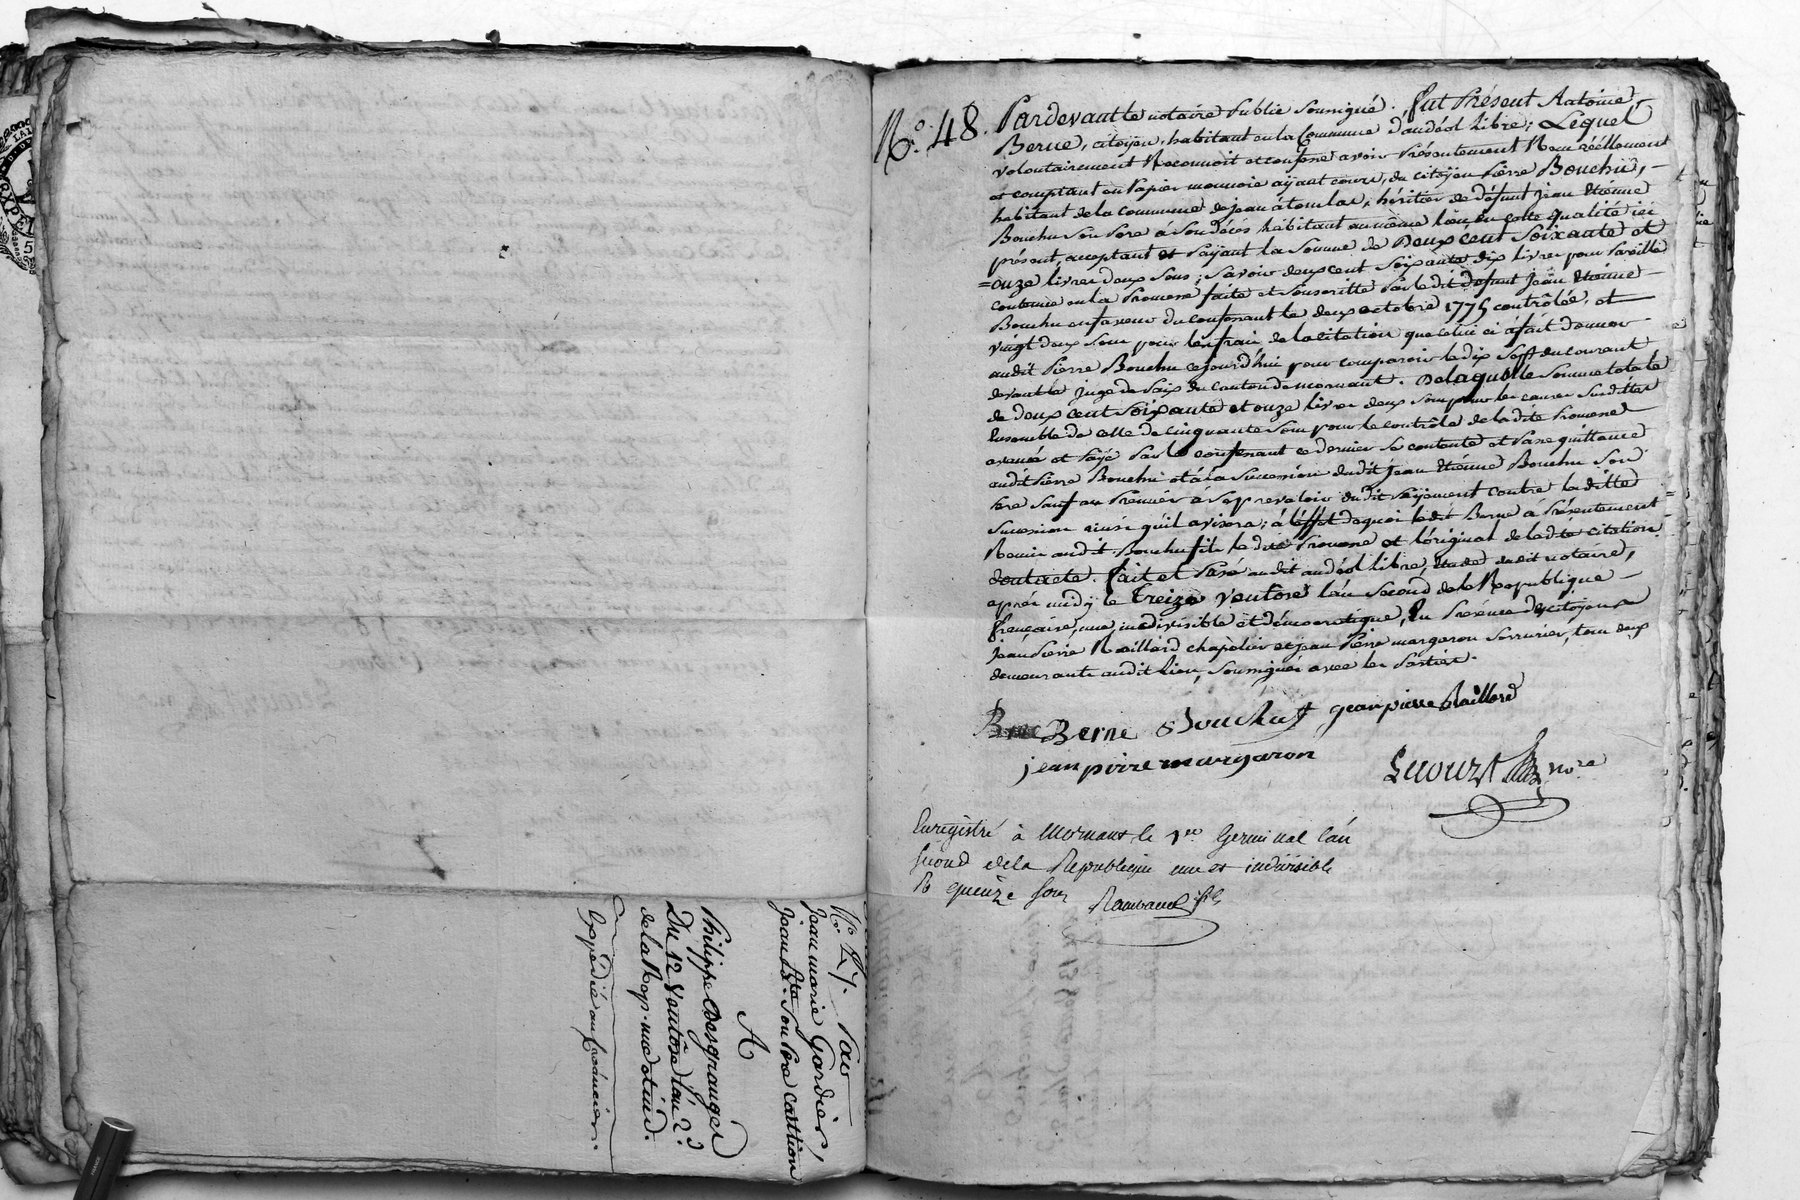 N.º 47. Par
Jean marie Gardier,
Jean Bte. Son Pere caution
A
Philippe Desgranges
Du 12 Ventôse l'an 2d.
de la Rep. une et ind.
Expédié au Créancier.
N.º 48. Pardevant le notaire Public Soussigné. fut Présent Antoine
Berne, citoÿen, habitant en la Commune d'andéol Libre; Lequel
volontairement Reconnoit et confesse avoir Présentement Reçu réellement
et comptant en Papier monnoie aÿant cours, du citoÿen Pierre Bouchu,
habitant de la Commune de jean átoulas, héritier de défunt Jean Etiénne
Bouchu Son Pere a Son décès habitant au même lieu, en cette qualité ici
présent, acceptant et Paÿant la Somme de Deux cent Soixante et
onze livres deux Sous; Savoir deux cent Soixante dix livres pour Pareille
contenue en la Promesse faite et Souscritte Par le dit défunt Jean Etiénne
Bouchu en faveur du confessant le deux octobre 1775 contrôlée, et
vingt deux Sous pour les frais de la citation que celui ci á fait donner
audit Pierre Bouchu cejourd'hui pour comparoir le dix Sept du courant
devant le juge de Paix du canton de mornant. De laquelle Somme totale
de deux cent Soixante et onze livres deux Sous pour les causes Susdittes
Ensemble de celle de cinquante Sous pour le contrôle de la dite Promesse
avancé et Paÿé Par le confessant ce dernier Se contente et Passe quittance
audit Pierre Bouchu et á la Succession dudit Jean Etiénne Bouchu Son
Pere Sauf au Premier á Se prevaloir dudit Paÿement contre la ditte
Succession ainsi qu'il avisera; á l'effet de quoi le dit Berne a Présentement
Remis audit Bouchu fils la dite Promesse et l'original de la dite citation
dont acte. fait et Passé audit andéol Libre, étude dudit notaire,
aprés midÿ le treize ventôse l'an Second de la Republique
française, une, indivisible et démocratique, En Présence des citoÿens
Jean Pierre Raillard chapelier et jean Pierre margaron Serrurier, tous deux
demeurants audit lieu, Soussignés avec les Parties.
Berne Bouchut jean pierre Raillard
jean pirre margaron
nore
Enregistré à Mornant le 1er Germinal l'an
Second de la Republique une et indivisible
R quinze Sous